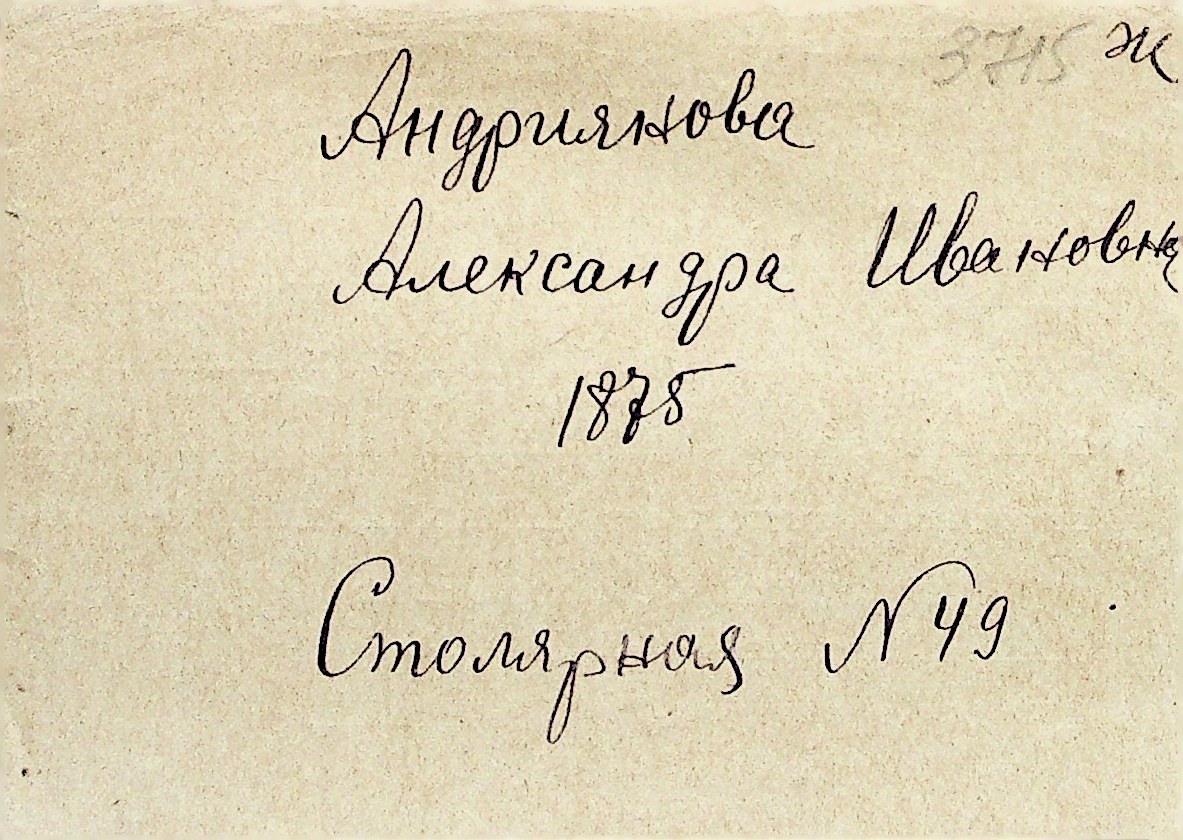 3715 ж
Андриянова
Александра Ивановна
1875
Столярная №49